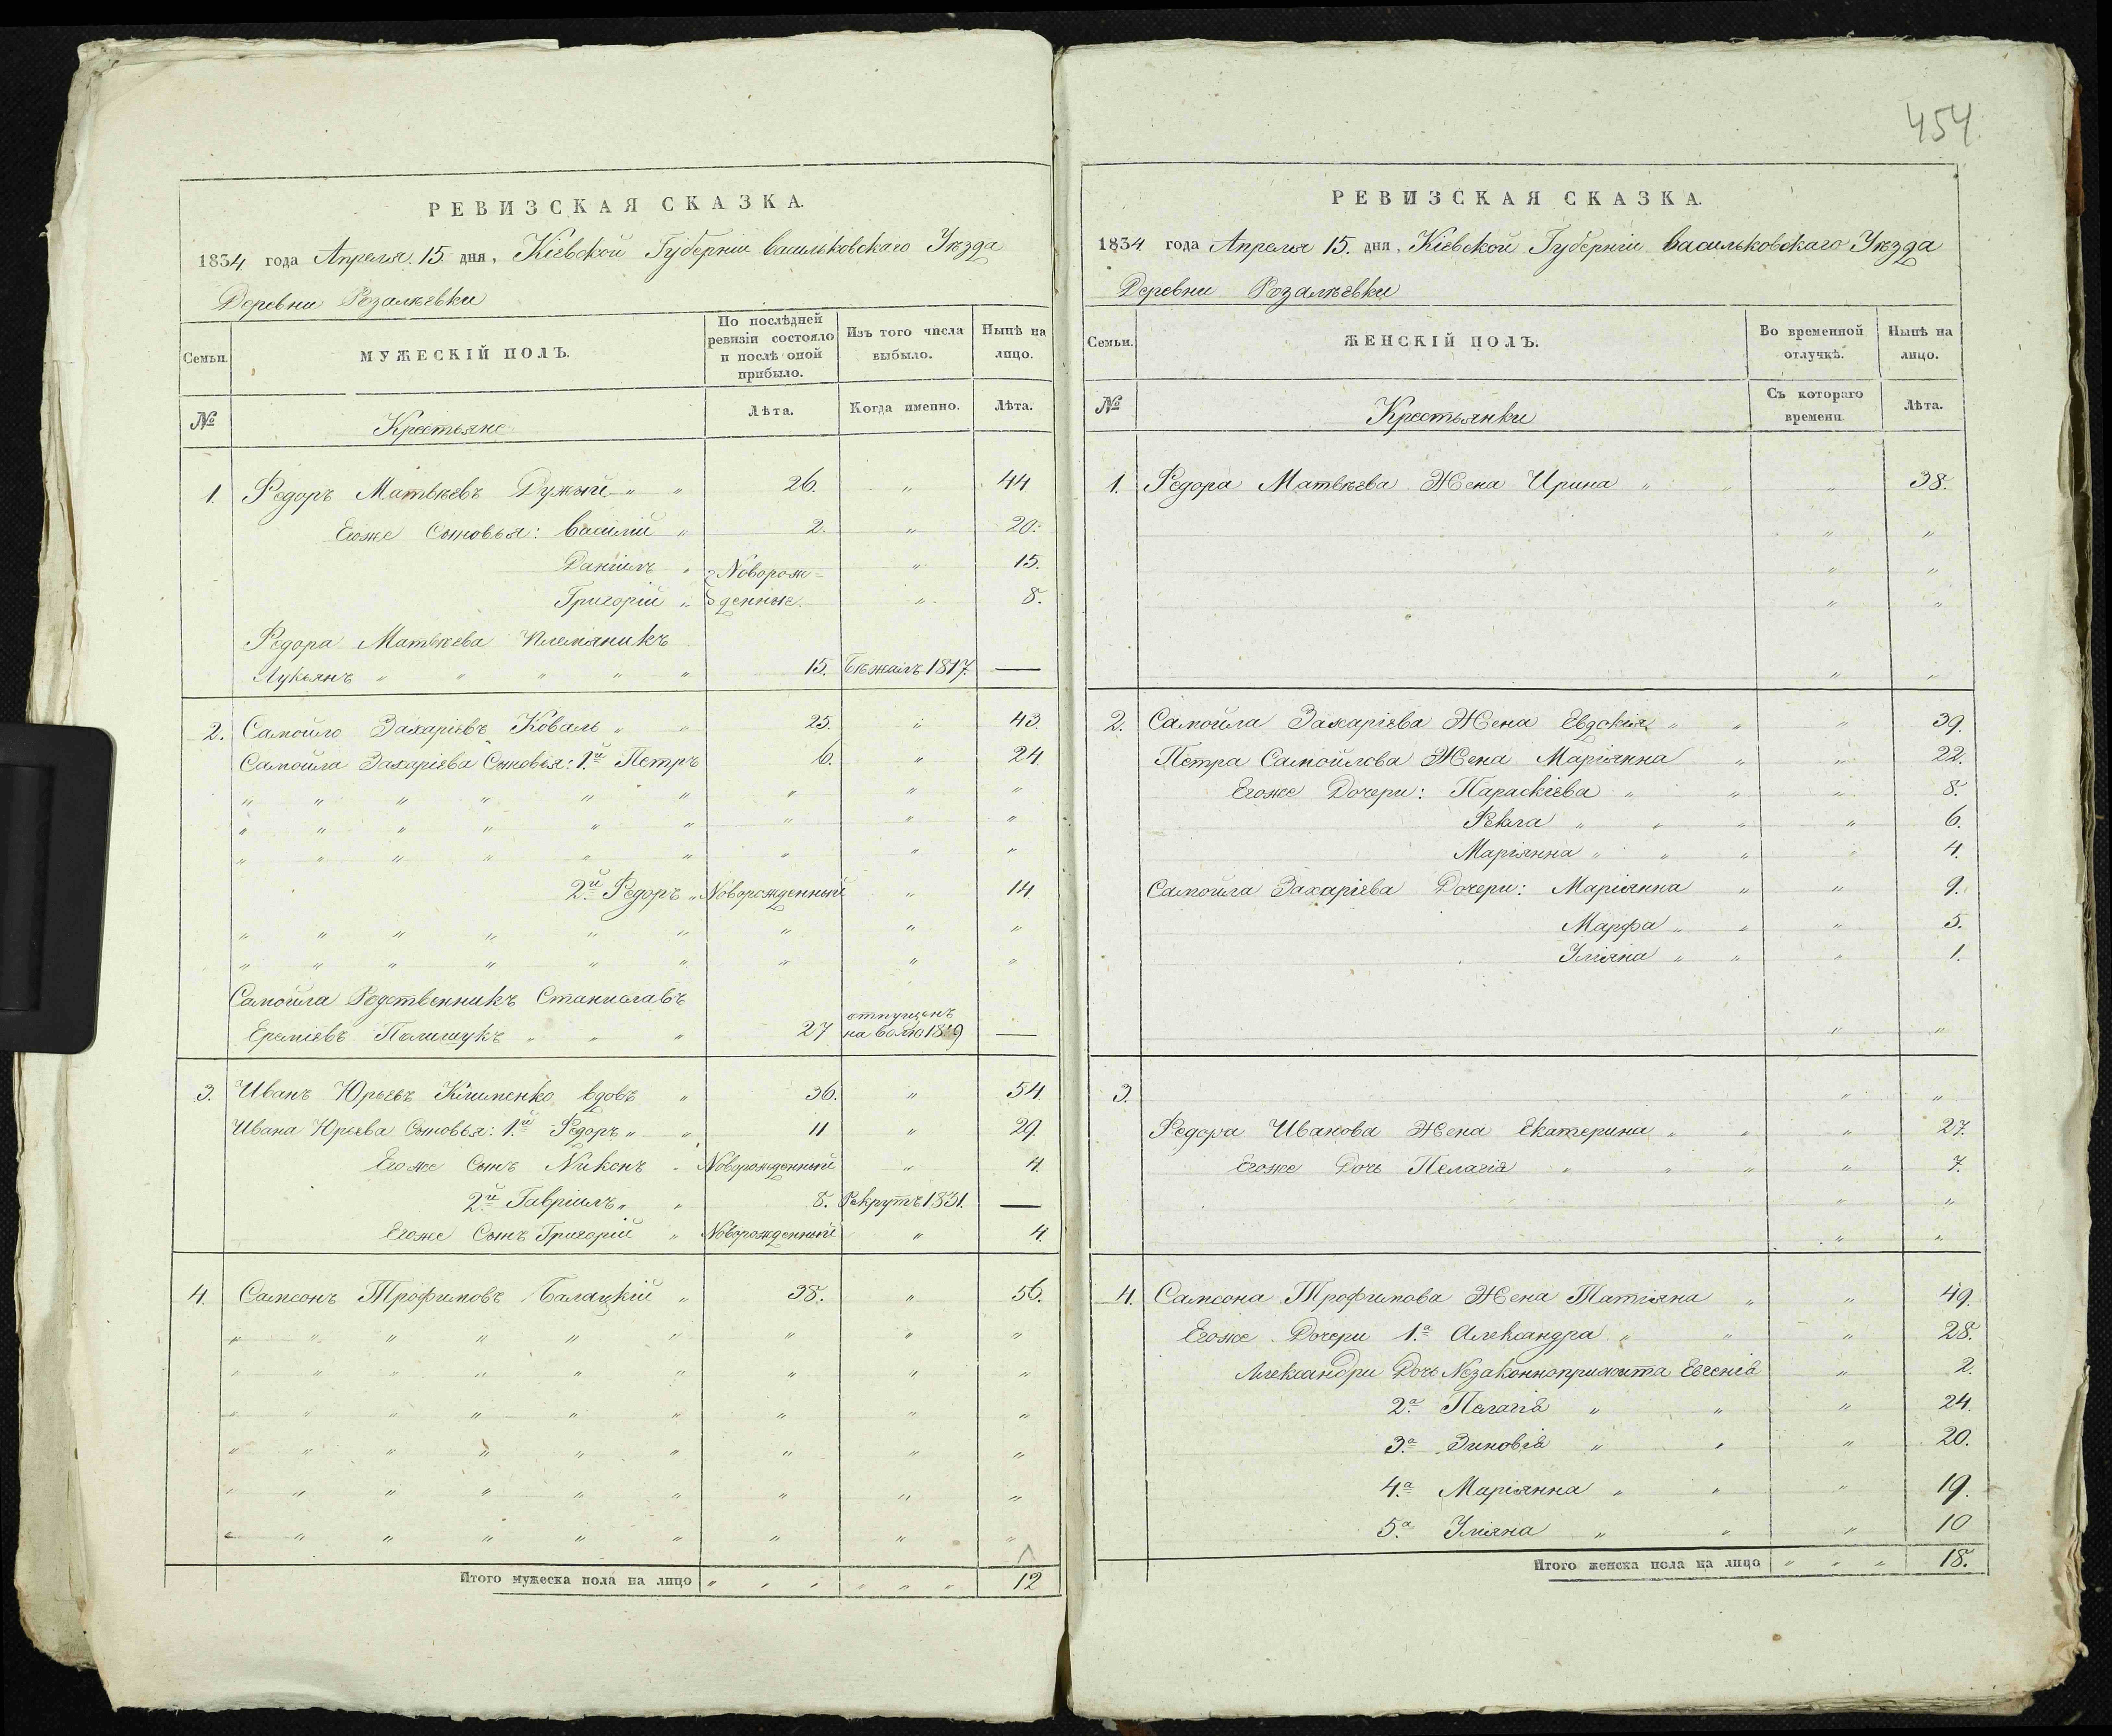 РЕВИЗСКАЯ СКАЗКА.
1834 года Апреля 15 дня, Кіевской Губерніи Васильковскаго Уѣзда
Деревни Розалѣевки
Семьи.
МУЖЕСКІЙ ПОЛЪ.
По послѣдней ревизіи состояло и послѣ оной прибыло.
Изъ того числа выбыло.
Нынѣ на лицо.
№
Крестьяне
Лѣта.
Когда именно.
Лѣта.
1. Федоръ Матвѣевъ Дужый " " 26. " 44
Егоже Сыновья: Василій " 2. " 20.
Даніилъ " Новорож= " 15.
Григорій " денные. " 8.
Федора Матвѣева племяникъ
Лукьянъ " " " " " 15. Бѣжалъ 1817. —
2. Самойло Захаріевъ Коваль " " 25. " 43.
Самойла Захаріева Сыновья: 1й Петръ 6. " 24.
" " " " " " " " "
" " " " " " " " "
" " " " " " " " "
2й Федоръ " Новорожденный " 14.
" " " " " " " " "
" " " " " " " " "
Самойла Родственникъ Станиславъ
Ереміевъ Полищукъ " " " 27 отпущенъ на волю 1819 —
3. Иванъ Юрьевъ Клименко вдовъ " 36. " 54.
Ивана Юрьева Сыновья: 1й Федоръ " " 11 " 29.
Егоже Сынъ Никонъ " Новорожденный " 4.
2й Гавріилъ " " 8. Рекрутъ 1831. —
Егоже Сынъ Григорій " Новорожденный " 4.
4. Самсонъ Трофимовъ Балацкій " 38. " 56.
" " " " " " " " "
" " " " " " " " "
" " " " " " " " "
" " " " " " " " "
" " " " " " " " "
" " " " " " " " "
Итого мужеска пола на лицо " " " " " " 12
454.
РЕВИЗСКАЯ СКАЗКА.
1834 года Апреля 15. дня, Кіевской Губерніи Васильковскаго Уѣзда
Деревни Розалѣевки
Семьи.
ЖЕНСКІЙ ПОЛЪ.
Во временной отлучкѣ.
Нынѣ на лицо.
№
Крестьянки
Съ котораго времени.
Лѣта.
1. Федора Матвѣева Жена Ирина " " " 38.
" "
" "
" "
" "
2. Самойла Захаріева Жена Евдокія " " " 39.
Петра Самойлова Жена Маріянна " " 22.
Егоже Дочери: Параскіева " " " 8.
Фекла " " " " 6.
Маріянна " " " " 4.
Самойла Захаріева Дочери: Маріянна " " 9.
Марфа " " " 5.
Уліяна " " " 1.
" "
3. " "
Федора Иванова Жена Екатерина " " " 27.
Егоже Дочь Пелагія " " " " 7.
" "
" "
4. Самсона Трофимова Жена Татіяна " " 49.
Егоже Дочери 1а Александра " " " 28.
Александри Дочь Незаконноприжита Евгенія " 2.
2а Пелагія " " " 24.
3а Зиновія " " " 20.
4а Маріянна " " " 19.
5а Уліяна " " " 10
Итого женска пола на лицо " " " 18.